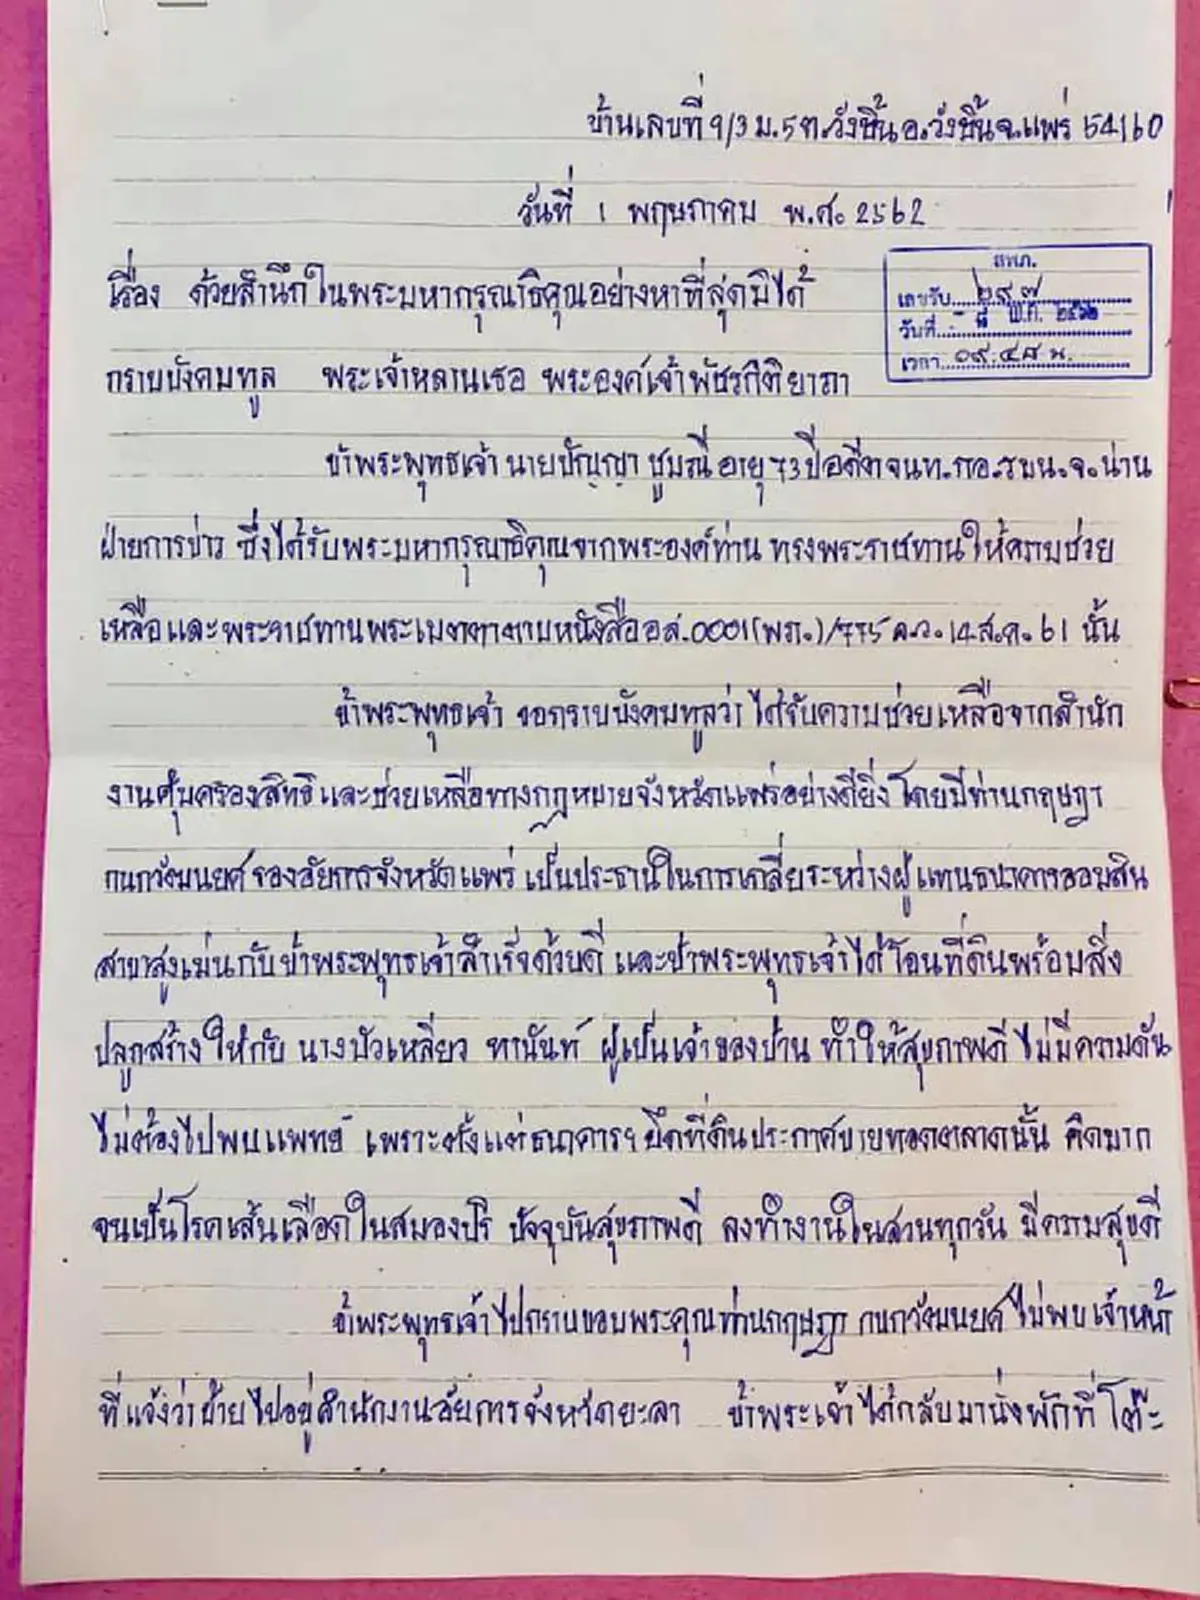 บ้านเลขที่ 9/3 ม.5 ต.วังชิ้น อ.วังชิ้น จ.แพร่ 54160
วันที่ 1 พฤษภาคม พ.ศ. 2562
สพภ.
เลขรับ ๒๙๗
วันที่ - ๘ พ.ค. ๒๕๖๒
เวลา ๐๙.๔๘ น.
เรื่อง ด้วยสำนึกในพระมหากรุณาธิคุณอย่างหาที่สุดมิได้
กราบบังคมทูล พระเจ้าหลานเธอ พระองค์เจ้าพัชรกิติยาภา
ข้าพระพุทธเจ้า นายปัญญา ชูมณี อายุ 73 ปี อดีตจนท.กอ.รมน.จ.น่าน
ฝ่ายการข่าว ซึ่งได้รับพระมหากรุณาธิคุณจากพระองค์ท่าน ทรงพระราชทานให้ความช่วย
เหลือและพระราชทานพระเมตตาตามหนังสืออส.0001(พภ.)/775 ล.ว.14 ส.ค.61 นั้น
ข้าพระพุทธเจ้า ขอกราบบังคมทูลว่า ได้รับความช่วยเหลือจากสำนัก
งานคุ้มครองสิทธิและช่วยเหลือทางกฎหมายจังหวัดแพร่อย่างดียิ่ง โดยมีท่านกฤษฎา
กนกวัฒนยศ รองอัยการจังหวัดแพร่ เป็นประธานในการเกลี่ยระหว่างผู้แทนธนาคารออมสิน
สาขาสูงเม่นกับข้าพระพุทธเจ้าสำเร็จด้วยดี และข้าพระพุทธเจ้าได้โอนที่ดินพร้อมสิ่ง
ปลูกสร้างให้กับ นางบัวเหลี่ยว ทานันท์ ผู้เป็นเจ้าของบ้าน ทำให้สุขภาพดี ไม่มีความดัน
ไม่ต้องไปพบแพทย์ เพราะตั้งแต่ธนาคารฯ ยึดที่ดินประกาศขายทอดตลาดนั้น คิดมาก
จนเป็นโรคเส้นเลือดในสมองปริ ปัจจุบันสุขภาพดี ลงทำงานในสวนทุกวัน มีความสุขดี
ข้าพระพุทธเจ้าไปกราบขอบพระคุณท่านกฤษฎา กนกวัฒนยศ ไม่พบเจ้าหน้า
ที่แจ้งว่าย้ายไปอยู่สำนักงานอัยการจังหวัดยะลา ข้าพระเจ้าได้กลับมานั่งพักที่โต๊ะ